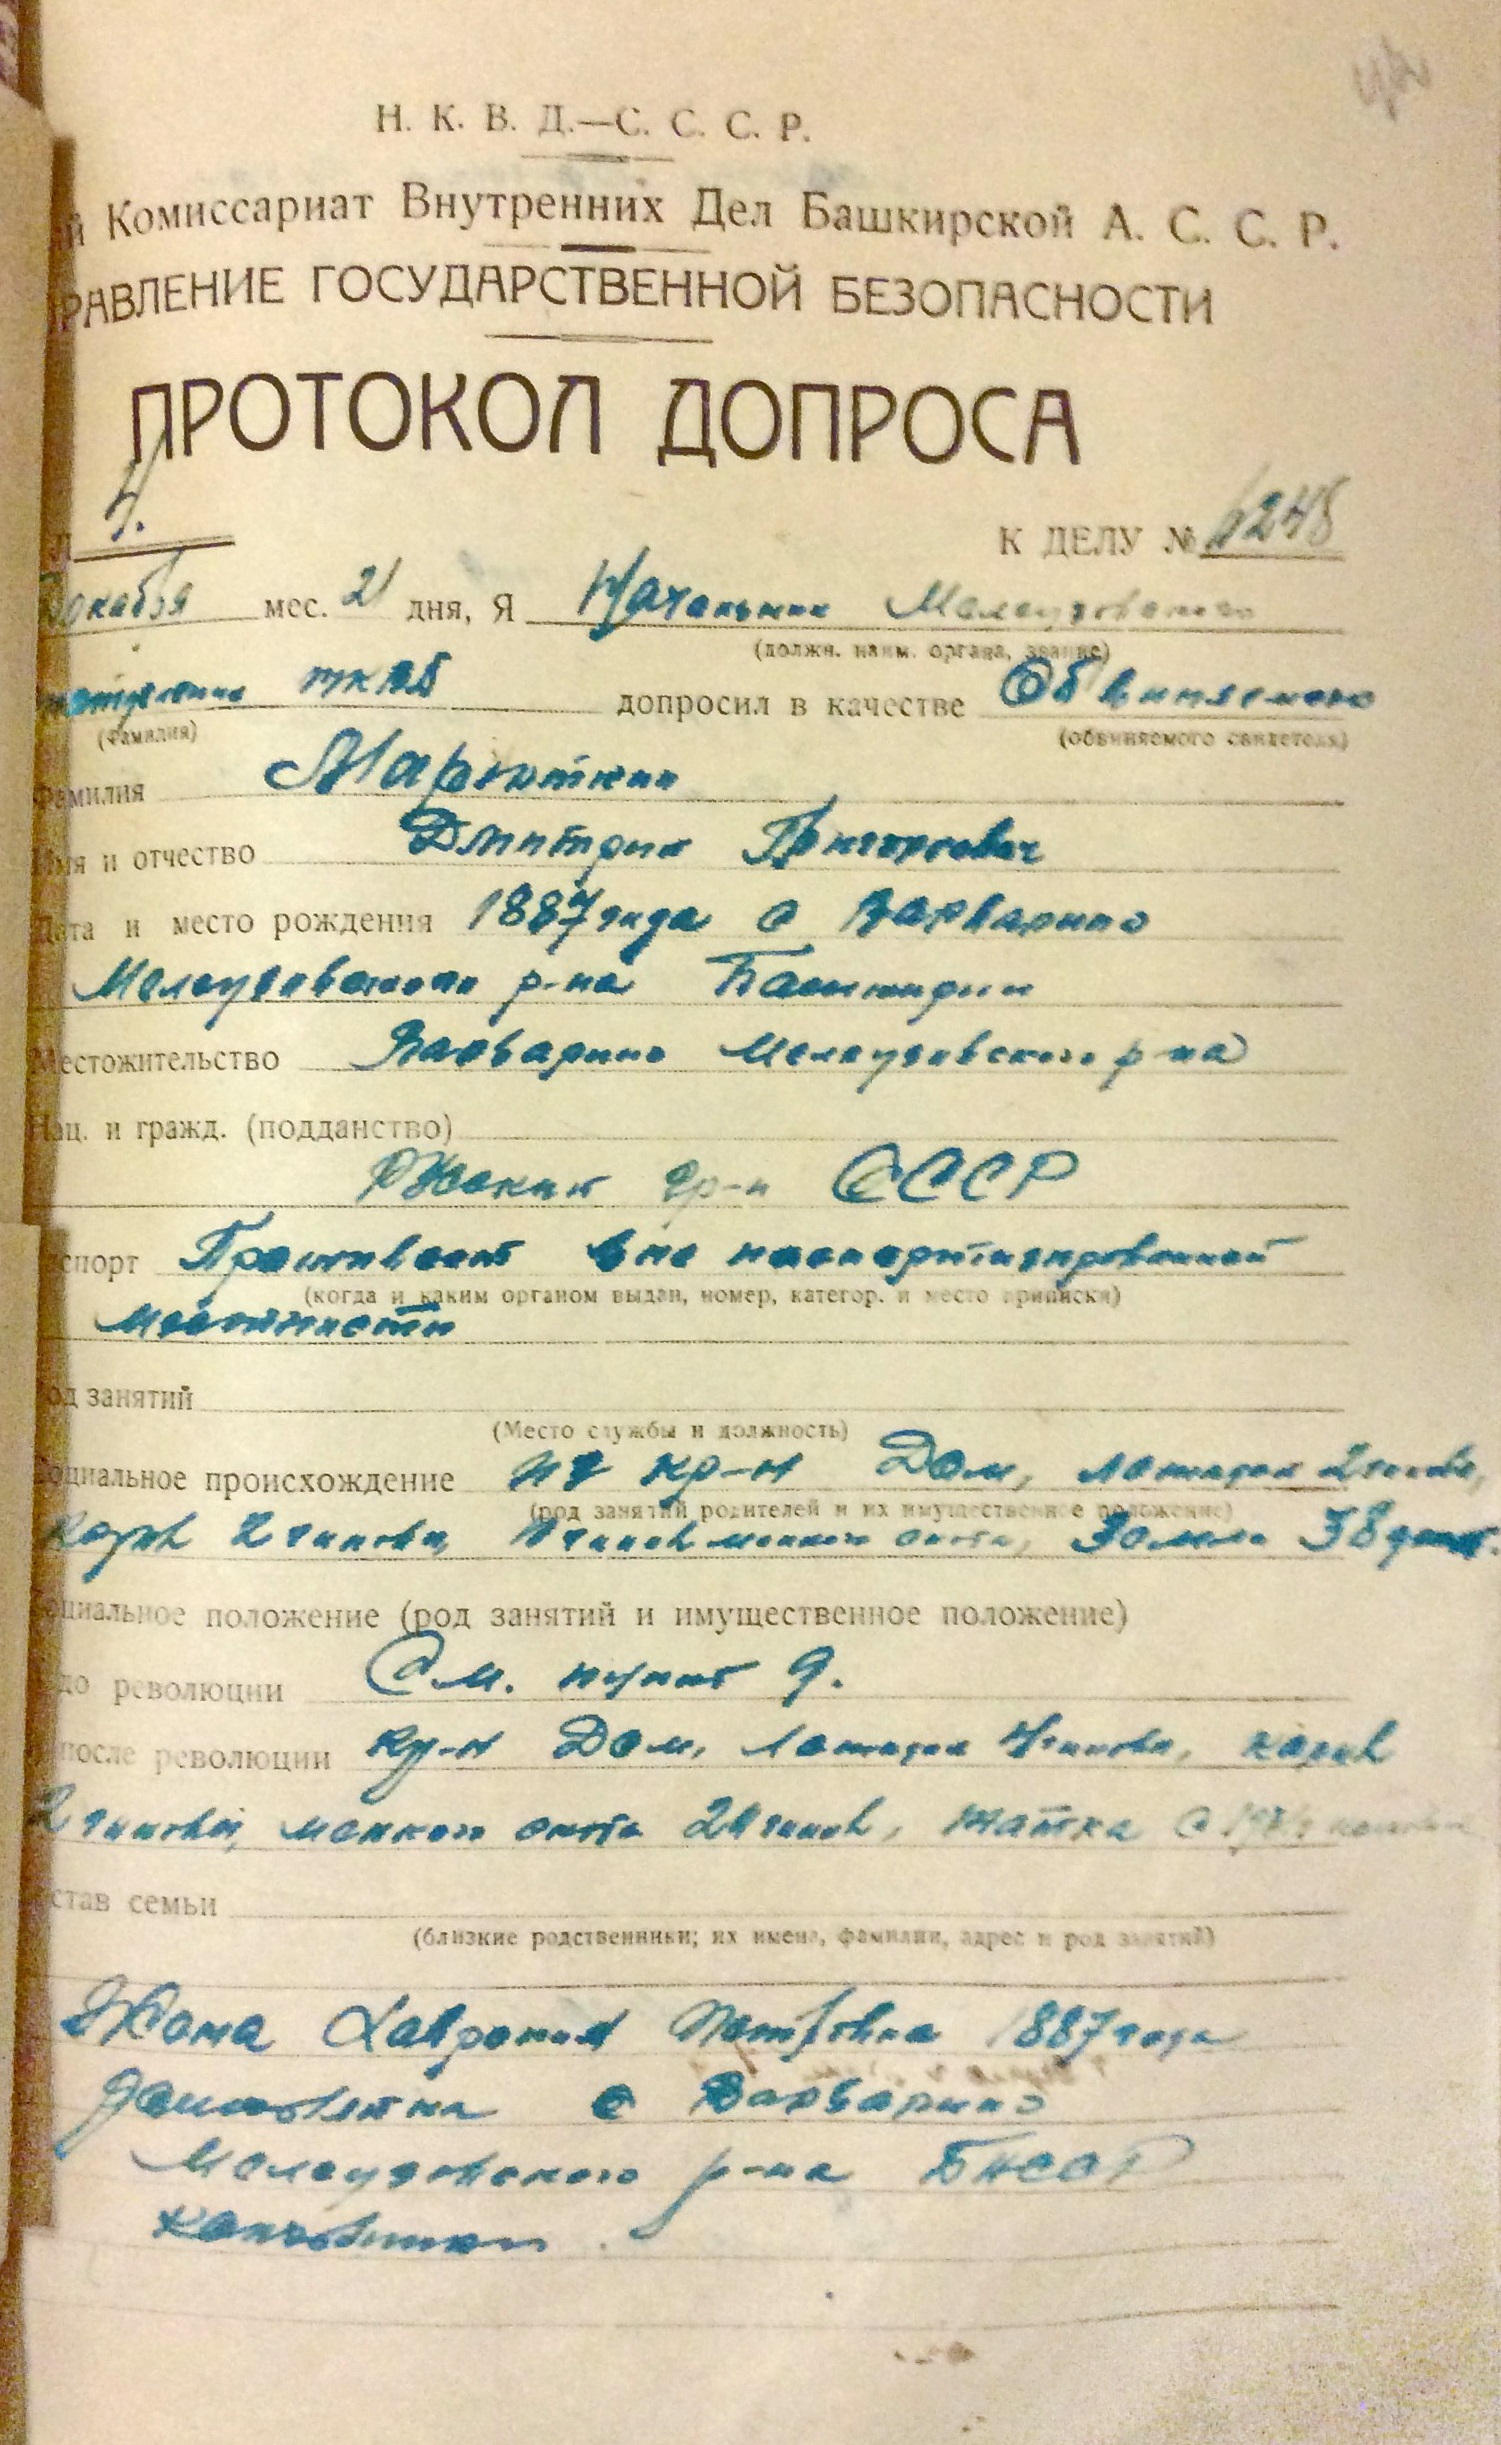 Н. К. В. Д.—С. С. С. Р.
й Комиссариат Внутренних Дел Башкирской А. С. С. Р.
РАВЛЕНИЕ ГОСУДАРСТВЕННОЙ БЕЗОПАСНОСТИ
ПРОТОКОЛ ДОПРОСА
К ДЕЛУ № 6248
Декабря мес. 21 дня, Я Начальник Мелеузовского
(должн. наим. органа, звание)
допросил в качестве Обвиняемого
(фамилия) (обвиняемого свидетеля)
Фамилия
Имя и отчество Дмитрий Григорьевич
Дата и место рождения 1887 года с Варварино
Мелеузовского р-на Башкирии
Местожительство Варварино Мелеузовского р-на
Нац. и гражд. (подданство)
гр-н СССР
спорт Проживает вне паспортизированной
(когда и каким органом выдан, номер, категор. и место приписки)
местности
од занятий
(Место службы и должность)
Социальное происхождение из кр-н Дом, лошадей 2 головы,
(род занятий родителей и их имущественное положение)
Коров 2 головы, голов мелкого скота, Земли
Социальное положение (род занятий и имущественное положение)
до революции См. пункт 9.
после революции кр-н Дом, лошадей 4 головы, коров
2 головы, мелкого скота 20 голов, жатка с
став семьи
(близкие родственники; их имена, фамилии, адрес и род занятий)
Жена Хаврония Петровна 1887 года
с Варварино
Мелеузовского р-на БАССР